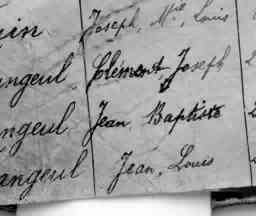 Joseph, Mie, Louis
angeul Clément, Joseph 2
ngeul Jean Baptiste 2
angeul Jean, Louis